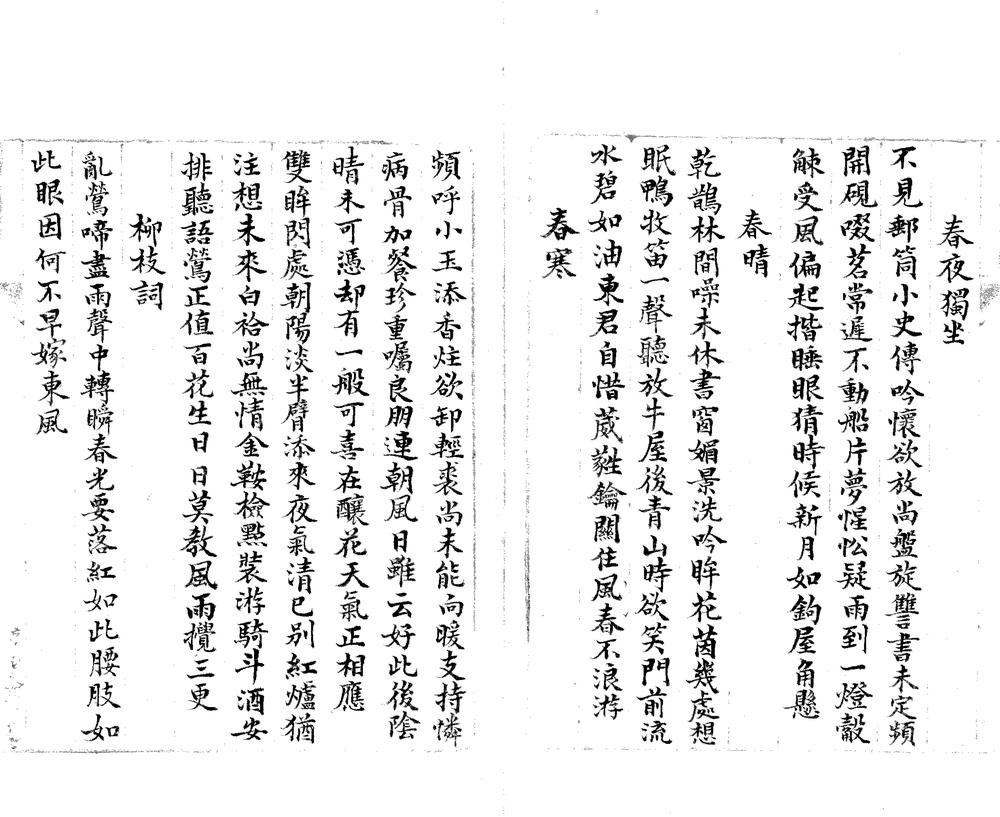 春夜獨坐
不見郵筒小史傳吟懷欲放尚盤旋讐書未定頻
開硯啜茗常遲不動船片夢惺忪疑雨到一燈觳
觫受風偏起揩睡眼猜時候新月如鉤屋角懸
春晴
乾鵲林間噪未休書窗媚景洗吟眸花茵幾處想
眠鴨牧笛一聲聽放牛屋後青山時欲笑門前流
水碧如油東君自惜葳蕤鑰關住風春不浪游
春寒
頻呼小玉添香炷欲卸輕裘尚未能向暖支持憐
病骨加餐珍重囑良朋連朝風日雖云好此後陰
晴未可憑却有一般可喜在釀花天氣正相應
雙眸閃處朝陽淡半臂添來夜氣清已別紅爐猶
注想未來白袷尚無情金鞍檢點裝游騎斗酒安
排聽語鶯正值百花生日日莫教風雨攪三更
柳枝詞
亂鶯啼盡雨聲中轉瞬春光要落紅如此腰肢如
此眼因何不早嫁東風